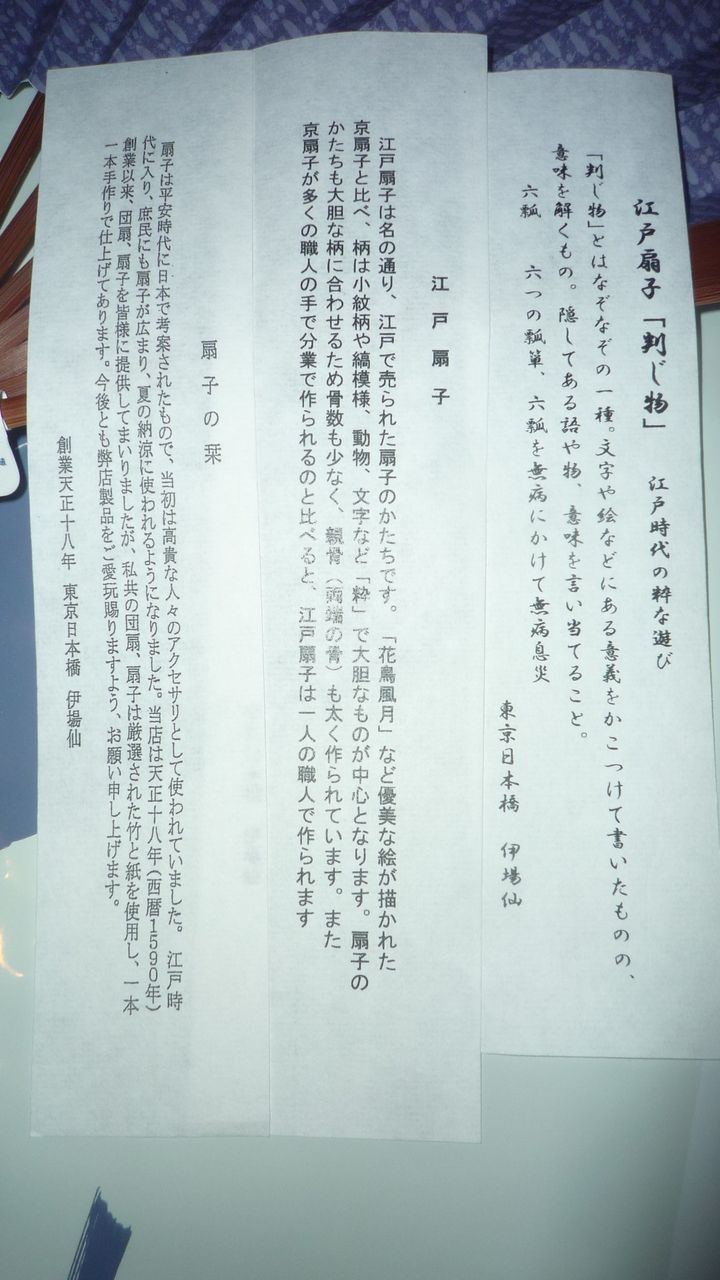 江戸扇子「判じ物」　江戸時代の粋な遊び
「判じ物」とはなぞなぞの一種。文字や絵などにある意義をかこつけて書いたものの、
意味を解くもの。隠してある語や物、意味を言い当てること。
六瓢　六つの瓢箪、六瓢を無病にかけて無病息災
東京日本橋　伊場仙
江戸扇子
江戸扇子は名の通り、江戸で売られた扇子のかたちです。「花鳥風月」など優美な絵が描かれた
京扇子と比べ、柄は小紋柄や縞模様、動物、文字など「粋」で大胆なものが中心となります。扇子の
かたちも大胆な柄に合わせるため骨数も少なく、親骨（両端の骨）も太く作られています。また
京扇子が多くの職人の手で分業で作られるのと比べると、江戸扇子は一人の職人で作られます
扇子の栞
扇子は平安時代に日本で考案されたもので、当初は高貴な人々のアクセサリとして使われていました。江戸時
代に入り、庶民にも扇子が広まり、夏の納涼に使われるようになりました。当店は天正十八年（西暦1590年）
創業以来、団扇、扇子を皆様に提供してまいりましたが、私共の団扇、扇子は厳選された竹と紙を使用し、一本
一本手作りで仕上げてあります。今後とも弊店製品をご愛玩賜りますよう、お願い申し上げます。
創業天正十八年　東京日本橋　伊場仙